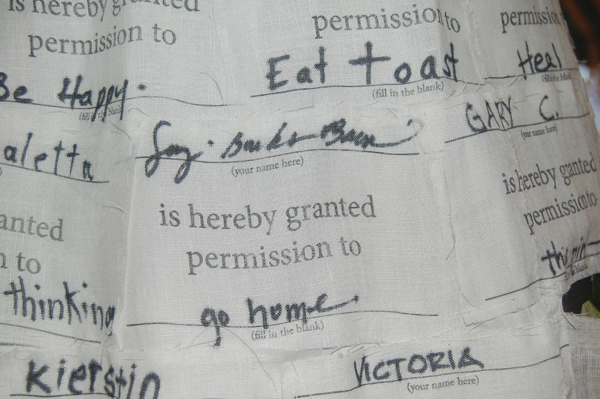 is hereby granted
permission to
Be Happy.
(fill in the blank)
permission to
Eat toast
(fill in the blank)
permission
Heal
(fill in the blank)
aletta
(your name here)
is hereby granted
permission to
go home.
(fill in the blank)
GARY C.
(your name here)
is hereby granted
permission to
anted
n to
thinking
Kierstin
VICTORIA
(your name here)